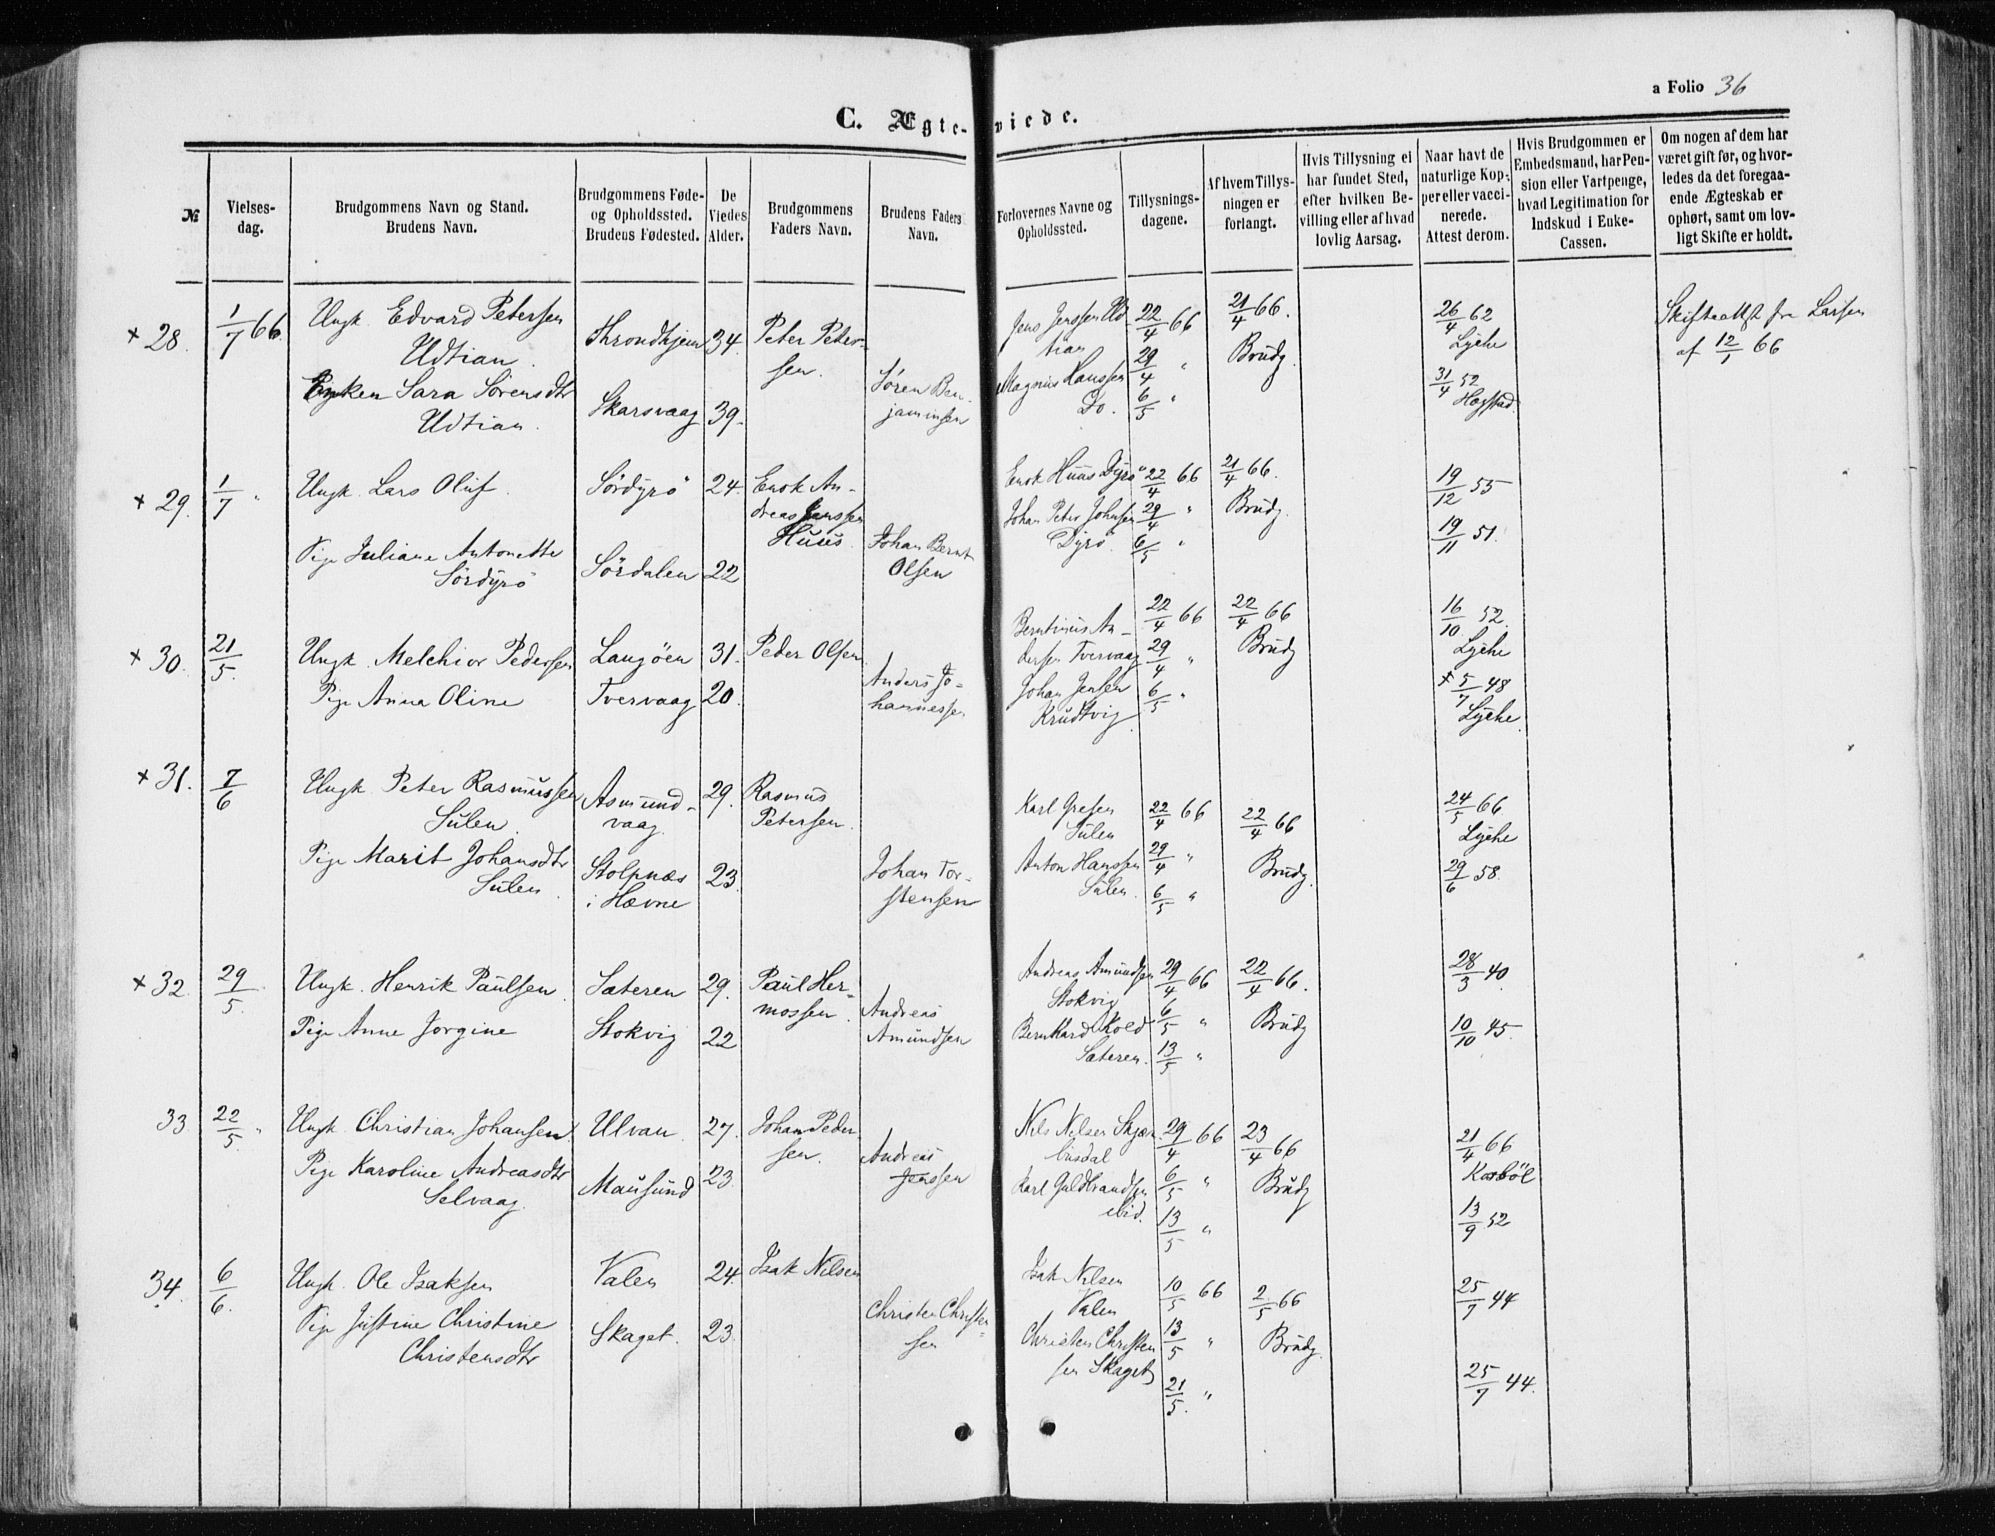 a Folio 36
C. Ægte- viede.
№
Vielses-
dag.
Brudgommens Navn og Stand.
Brudens Navn.
Brudgommens Føde-
og Opholdssted.
Brudens Fødested.
De
Viedes
Alder.
Brudgommens
Faders Navn.
Brudens Faders
Navn.
Forlovernes Navne og
Opholdssted.
Tillysnings-
dagene.
Af hvem Tillys-
ningen er
forlangt.
Hvis Tillysning ei
har fundet Sted,
efter hvilken Be-
villing eller af hvad
lovlig Aarsag.
Naar havt de
naturlige Kop-
per eller vacci-
nerede.
Attest derom.
Hvis Brudgommen er
Embedsmand, har Pen-
sion eller Vartpenge,
hvad Legitimation for
Indskud i Enke-
Cassen.
Om nogen af dem har
været gift før, og hvor-
ledes da det foregaa-
ende Ægteskab er
ophørt, samt om lov-
ligt Skifte er holdt.
+ 28.
1/7 66.
Ungk. Edvard Petersen
Udtian.
Enken Sara Sörensdtr
Udtian.
Throndhjem
Skarsvaag
34.
39.
Peter Peter-
sen.
Sören Ben-
jaminsen
Jens Jenssen Ud-
tian
Magnus Hanssen
Do.
22/4 66
29/4 "
6/5 "
21/4 66.
Brudg.
26/4 62
Lyche
31/4 52
Hagstad.
Skifteattst fra Larsen
af 12/1 66
+ 29.
1/7 "
Ungk. Lars Oluf.
Pige Juliane Antonette
Sördyrö
Sördyrö
Sördalen
24.
22
Enok An-
dreas Janssen
Huus.
Johan Bernt
Olsen
Enok Huus Dyrö
Johan Peter Johnsen
Dyrö.
22/4 66
29/4 "
6/5 "
21/4 66.
Brudg.
19/12 55
19/11 51.
+ 30.
21/5.
Ungk. Melchior Pedersen
Pige Anna Oline
Langöen
Tversvaag
31.
20.
Peder Olsen
Anders Jo-
hannessen
Berntinus An-
dersen Tversvaag
Johan Jensen
Krudtvig.
22/4 66
29/4 "
6/5 "
22/4 66
Brudg
16/10 52.
Lyche
+ 5/7 48
Lyche.
+ 31.
7/6
Ungk. Peter Rasmussen
Sulen.
Pige Marit Johansdtr
Sulen.
Asmund-
vaag.
Stolpnæs
i Hævne
29.
23.
Rasmus
Petersen.
Johan Tor-
stensen
Karl Gresen
Sulen
Anton Hanssen
Sulen.
22/4 66
29/4 "
6/5 "
22/4 66
Brudg.
24/5 66
Lyche
29/6 58.
+ 32.
29/5.
Ungk. Henrik Paulsen.
Pige Anne Jorgine
Sæteren
Stokvig
29.
22
Paul Her-
mossen.
Andreas
Amundsen
Andreas Amundsen
Stokvig
Bernhard Kold
Sæteren.
29/4 66
6/5 "
13/5 "
22/4 66.
Brudg
28/3 40.
10/10 45.
33
22/5. "
Ungk. Christian Johansen.
Pige Karoline Andreasdtr
Selvaag.
Ulvan.
Mausund
27.
23.
Johan Peder-
sen.
Andreas
Jenssen
Nils Nilsen
Karl Guldbrandsen
ibid.
29/4 66
6/5 "
13/5 "
23/4 66
Brudg
21/4 66
Korböl
13/9 52
34.
6/6.
Ungk. Ole Isaksen
Pige Justine Christine
Christensdtr
Valen
Skaget.
24.
23.
Isak Nilsen
Christen Christen-
sen
Isak Nilsen
Valen
Christen Christen
sen Skaget
10/5 66
13/5 "
21/5. "
2/5 66
Brudg.
25/7 44
25/7 44.